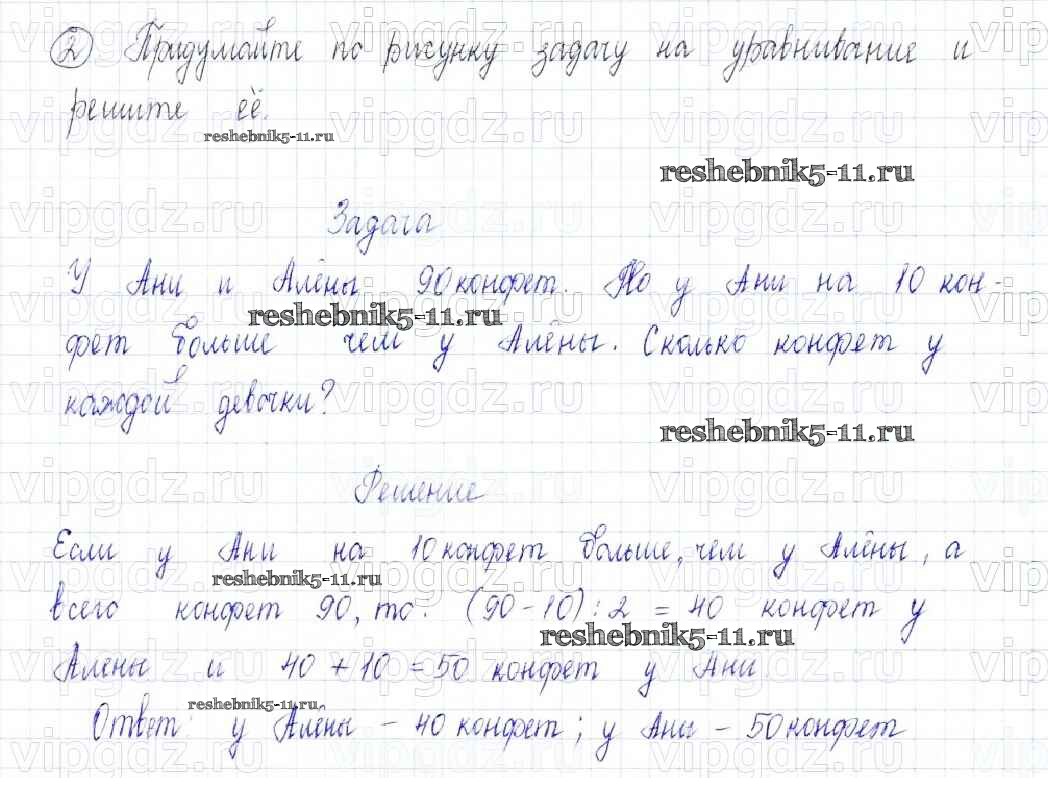 2 Придумайте по рисунку задачу на уравнивание и
решите её.
reshebnik5-11.ru
reshebnik5-11.ru
Задача
У Ани и Алёны 90 конфет. Но у Ани на 10 кон-
reshebnik5-11.ru
фет больше чем у Алёны. Сколько конфет у
каждой девочки?
reshebnik5-11.ru
Решение
Если у Ани на 10 конфет больше, чем у Алёны, а
reshebnik5-11.ru
всего конфет 90, то: (90-10):2 = 40 конфет у
reshebnik5-11.ru
Алены и 40+10=50 конфет у Ани
reshebnik5-11.ru
Ответ: у Алёны - 40 конфет; у Ани - 50 конфет
vipgdz.ru